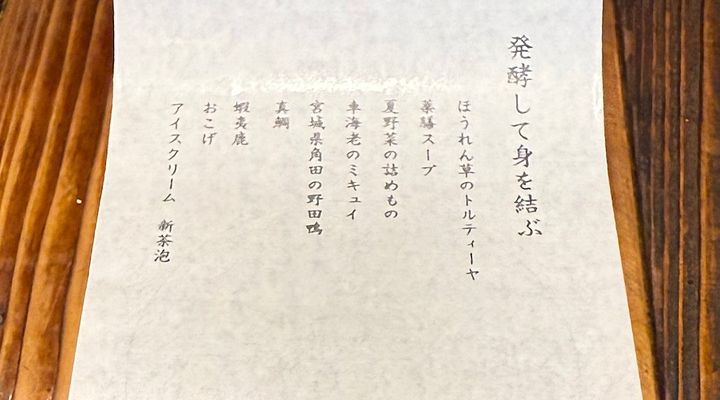 発酵して身を結ぶ
ほうれん草のトルティーヤ
薬膳スープ
夏野菜の詰めもの
車海老のミキュイ
宮城県角田の野田鴨
真鯛
蝦夷鹿
おこげ
アイスクリーム 新茶泡